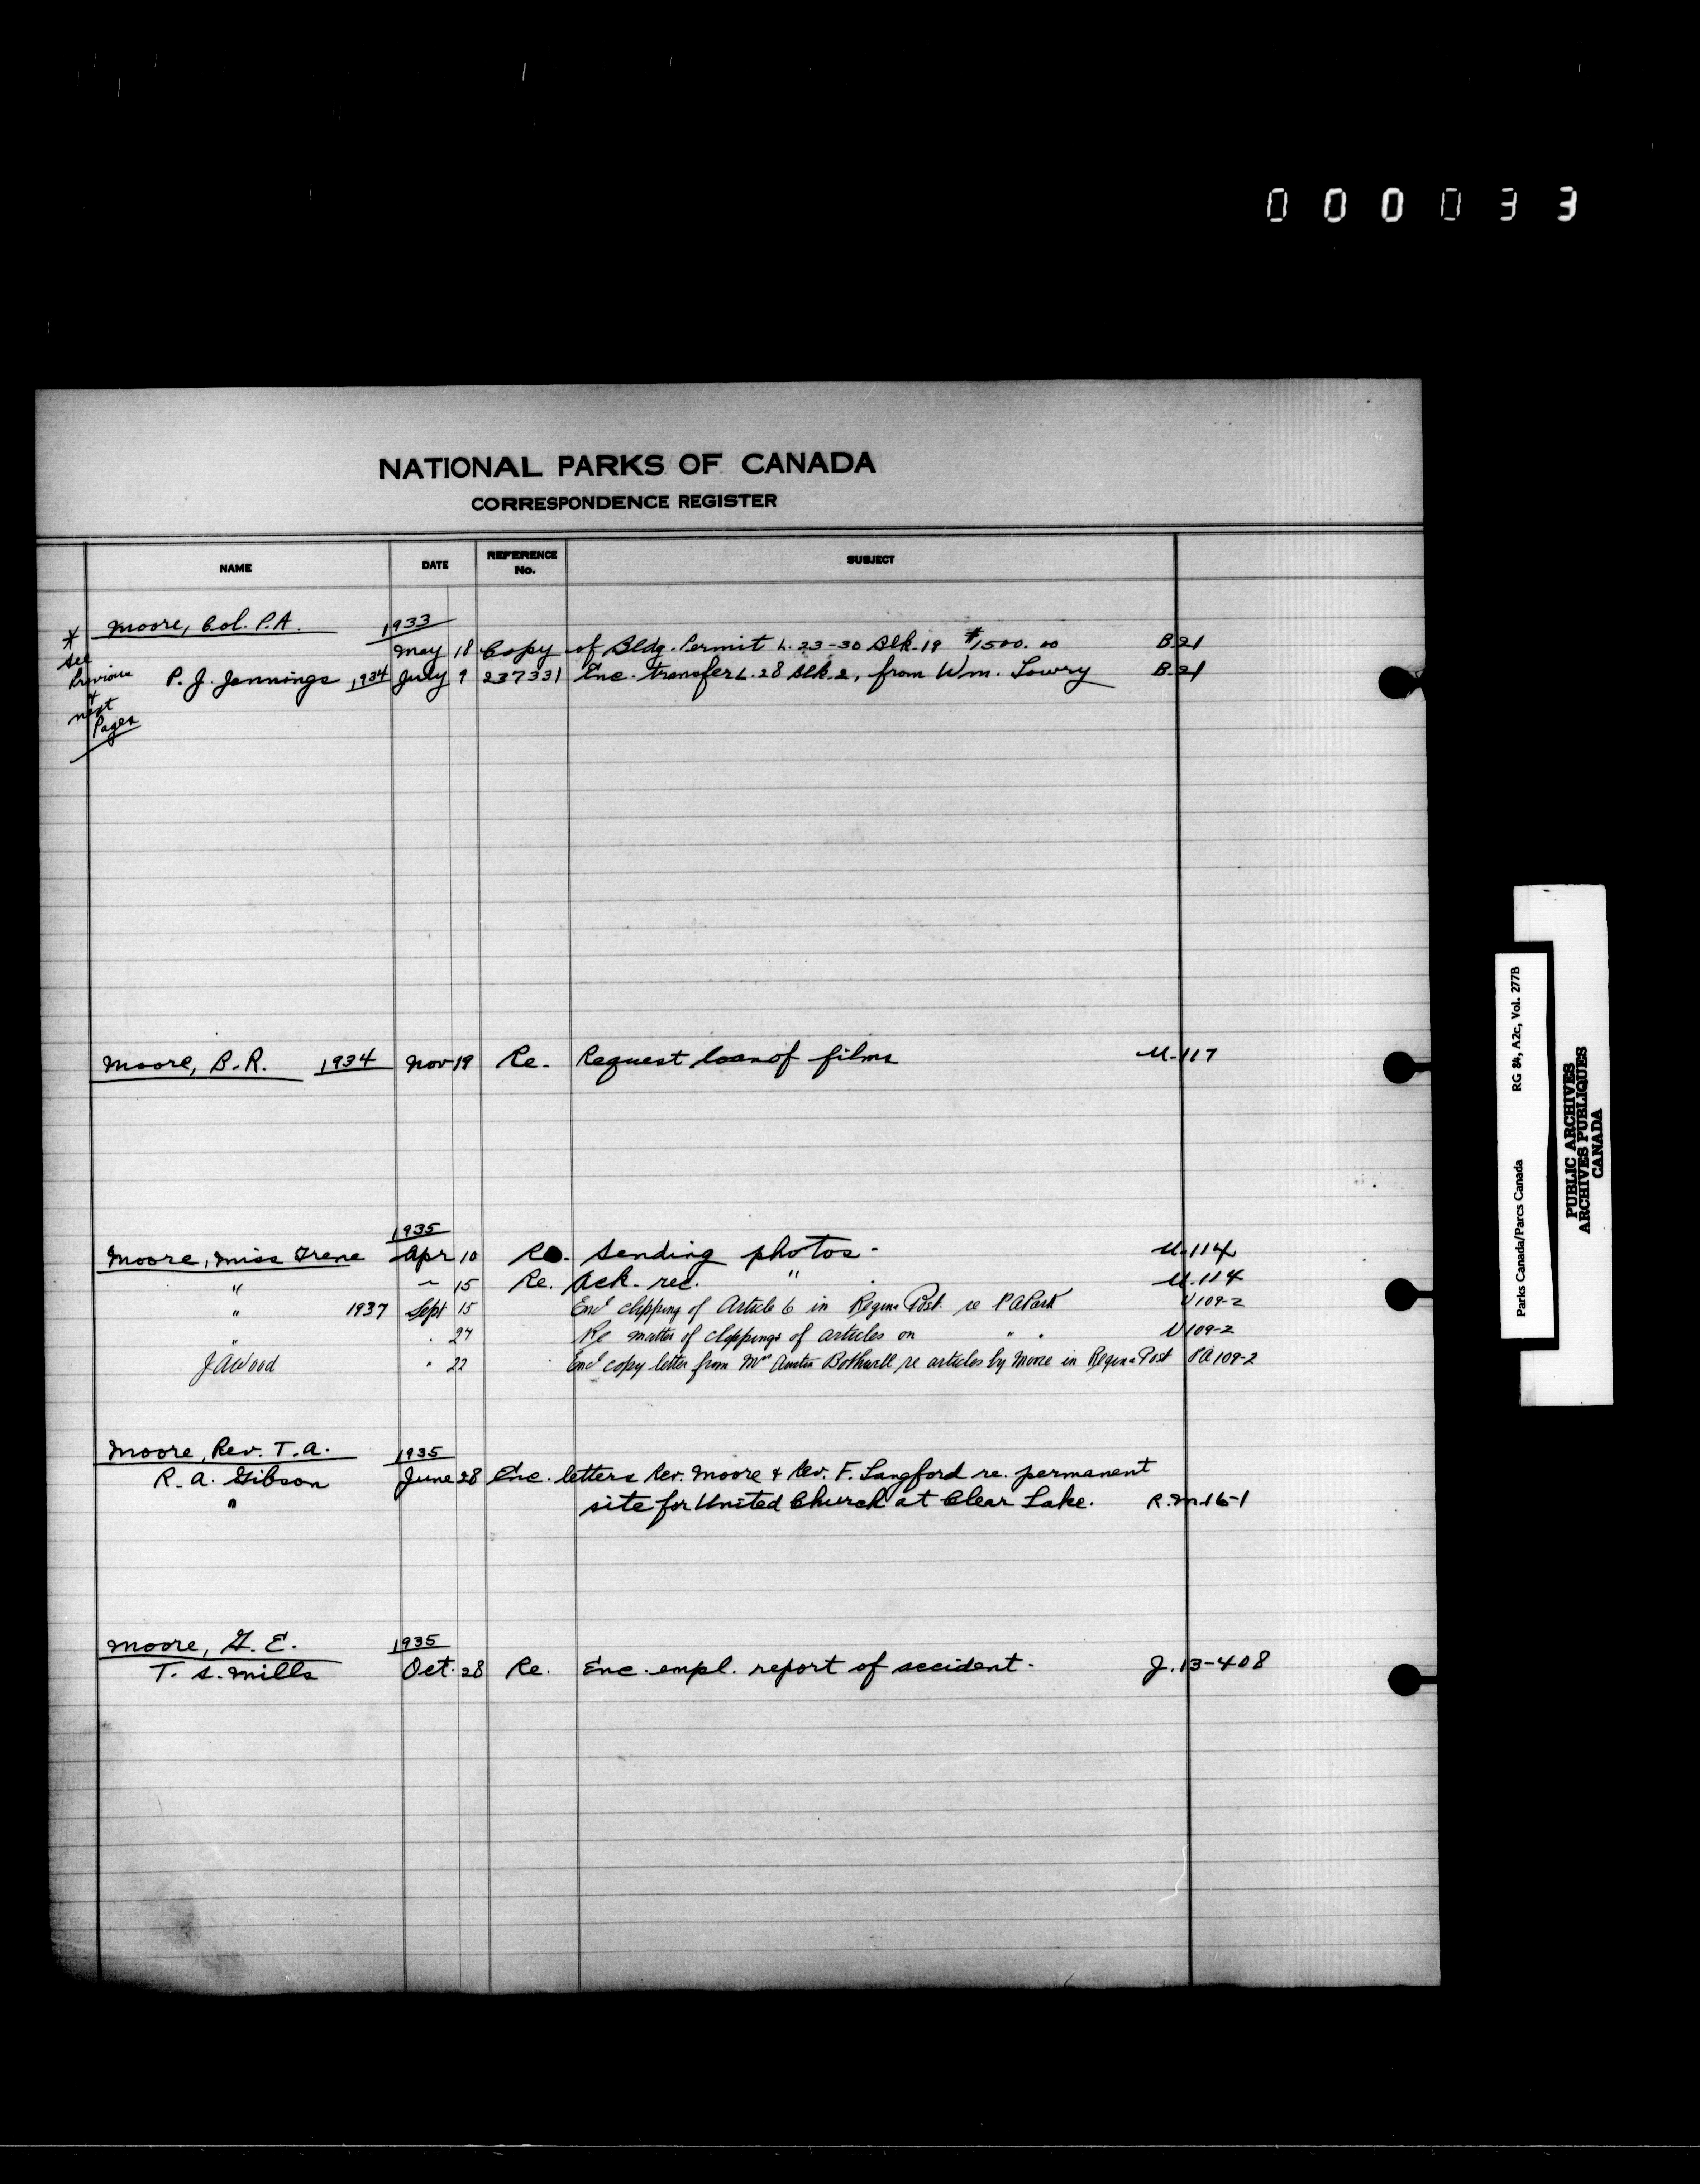 000033
NATIONAL PARKS OF CANADA
CORRESPONDENCE REGISTER
NAME DATE REFERENCE No. SUBJECT
Moore, Col. P.A. 1933
* See Previous & next Pages
May 18 Copy of Bldg. Permit L. 23-30 Blk. 19 $1500.00 B.21
P. J. Jennings 1934 July 9 237331 Enc. transfer L. 28 Blk 2, from Wm. Lowry B.21
Moore, B.R. 1934 Nov 19 Re. Request loan of films U.117
1935
Moore, Miss Irene Apr 10 Re. Sending photos. U.114
" " 15 Re. Ack. rec. " U.114
" 1937 Sept 15 Encl clipping of Article 6 in Regina Post re P A Park U109-2
" " 27 Re matter of clippings of articles on " " U109-2
J A Wood " 22 Encl copy letter from Mrs Austin Bothwell re articles by Moore in Regina Post PA 109-2
Moore, Rev. T.A. 1935
R. A. Gibson June 28 Enc. letters Rev. Moore & Rev. F. Langford re. permanent
" site for United Church at Clear Lake. R.M.16-1
Moore, G. E. 1935
T. S. Mills Oct. 28 Re. Enc. empl. report of accident. J.13-408
Parks Canada/Parcs Canada RG 84, A2c, Vol. 277B
PUBLIC ARCHIVES
ARCHIVES PUBLIQUES
CANADA